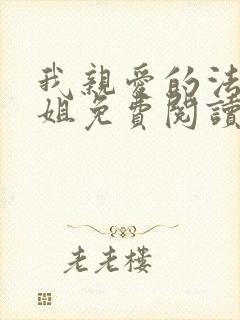 我親愛的法
姐免費閱讀
老老樓